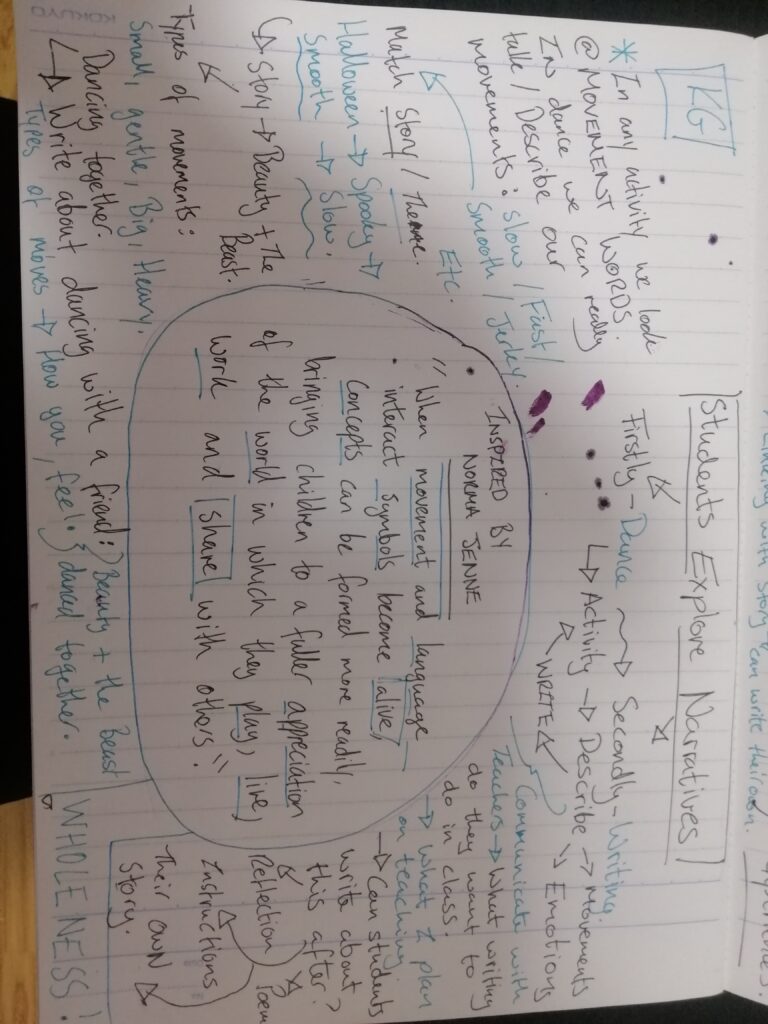 KOKUYO
/ Linking with story can write their own.
experiences.
Students Explore Narratives
KG
Firstly - Dance → Secondly - Writing.
↳ Activity → Describe → Movements
↘ Emotions
WRITE
* In any activity we look
@ MOVEMENT WORDS.
In dance we can really
talk / Describe our
movements: slow / Fast /
Smooth / Jerky.
Etc.
Match Story / Theme.
Halloween → Spooky →
Smooth → Slow.
↳ Story → Beauty + The
Beast.
Types of movements:
Small, gentle, Big, Heavy.
Dancing together.
↳ Write about dancing with a friend: } Beauty + the Beast
Types of moves → How you feel. } danced together.
INSPIRED BY
NORMA JENNE
"When movement and language
interact symbols become alive,
concepts can be formed more readily,
bringing children to a fuller appreciation
of the world in which they play, live,
work and share with others."
Communicate with
Teachers → What writing
do they want to
do in class.
→ What I plan
on teaching
→ Can students
write about
this after?
Reflection Poem
Instructions
Their own
Story.
WHOLENESS!